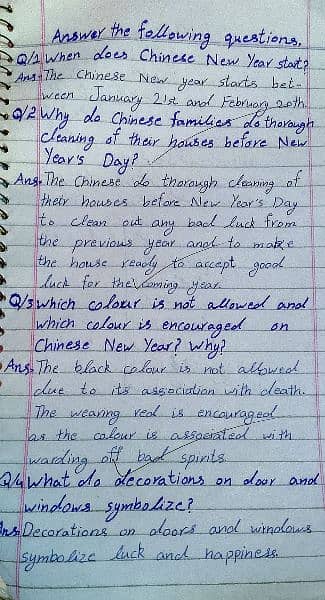 Answer the following questions.
Q/1 When does Chinese New Year start?
Ans. The Chinese New year starts bet-
ween January 21st and February 20th.
Q/2 Why do Chinese families do thorough
cleaning of their houses before New
Year's Day?
Ans. The Chinese do thorough cleaning of
their houses before New Year's Day
to clean out any bad luck from
the previous year and to make
the house ready to accept good
luck for the coming year.
Q/3 Which colour is not allowed and
which colour is encouraged on
Chinese New Year? Why?
Ans. The black colour is not allowed
due to its association with death.
The wearing red is encouraged
as the colour is associated with
warding off bad spirits.
Q/4 What do decorations on door and
windows symbolize?
Ans. Decorations on doors and windows
symbolize luck and happiness.